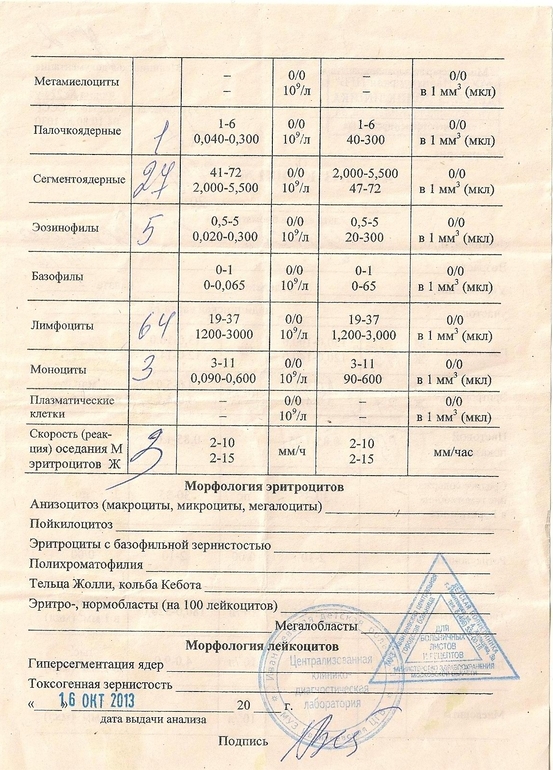 Метамиелоциты – 0/0 – 0/0
– 10⁹/л – в 1 мм³ (мкл)
Палочкоядерные 1 1-6 0/0 1-6 0/0
0,040-0,300 10⁹/л 40-300 в 1 мм³ (мкл)
Сегментоядерные 27 41-72 0/0 2,000-5,500 0/0
2,000-5,500 10⁹/л 47-72 в 1 мм³ (мкл)
Эозинофилы 5 0,5-5 0/0 0,5-5 0/0
0,020-0,300 10⁹/л 20-300 в 1 мм³ (мкл)
Базофилы 0-1 0/0 0-1 0/0
0-0,065 10⁹/л 0-65 в 1 мм³ (мкл)
Лимфоциты 64 19-37 0/0 19-37 0/0
1200-3000 10⁹/л 1,200-3,000 в 1 мм³ (мкл)
Моноциты 3 3-11 0/0 3-11 0/0
0,090-0,600 10⁹/л 90-600 в 1 мм³ (мкл)
Плазматические – 0/0 – 0/0
клетки – 10⁹/л – в 1 мм³ (мкл)
Скорость (реак-
ция) оседания М 3 2-10 мм/ч 2-10 мм/час
эритроцитов Ж 2-15 2-15
Морфология эритроцитов
Анизоцитоз (макроциты, микроциты, мегалоциты)
Пойкилоцитоз
Эритроциты с базофильной зернистостью
Полихроматофилия
Тельца Жолли, кольба Кебота
Эритро-, нормобласты (на 100 лейкоцитов)
Мегалобласты
Морфология лейкоцитов
Гиперсегментация ядер
Токсогенная зернистость
« 16 ОКТ 2013 » 20 г.
дата выдачи анализа
Подпись
Централизованная
клинико-
диагностическая
лаборатория
ДЛЯ
БОЛЬНИЧНЫХ
ЛИСТОВ
И РЕЦЕПТОВ
МИНИСТЕРСТВО ЗДРАВООХРАНЕНИЯ
МОСКОВСКОЙ ОБЛАСТИ